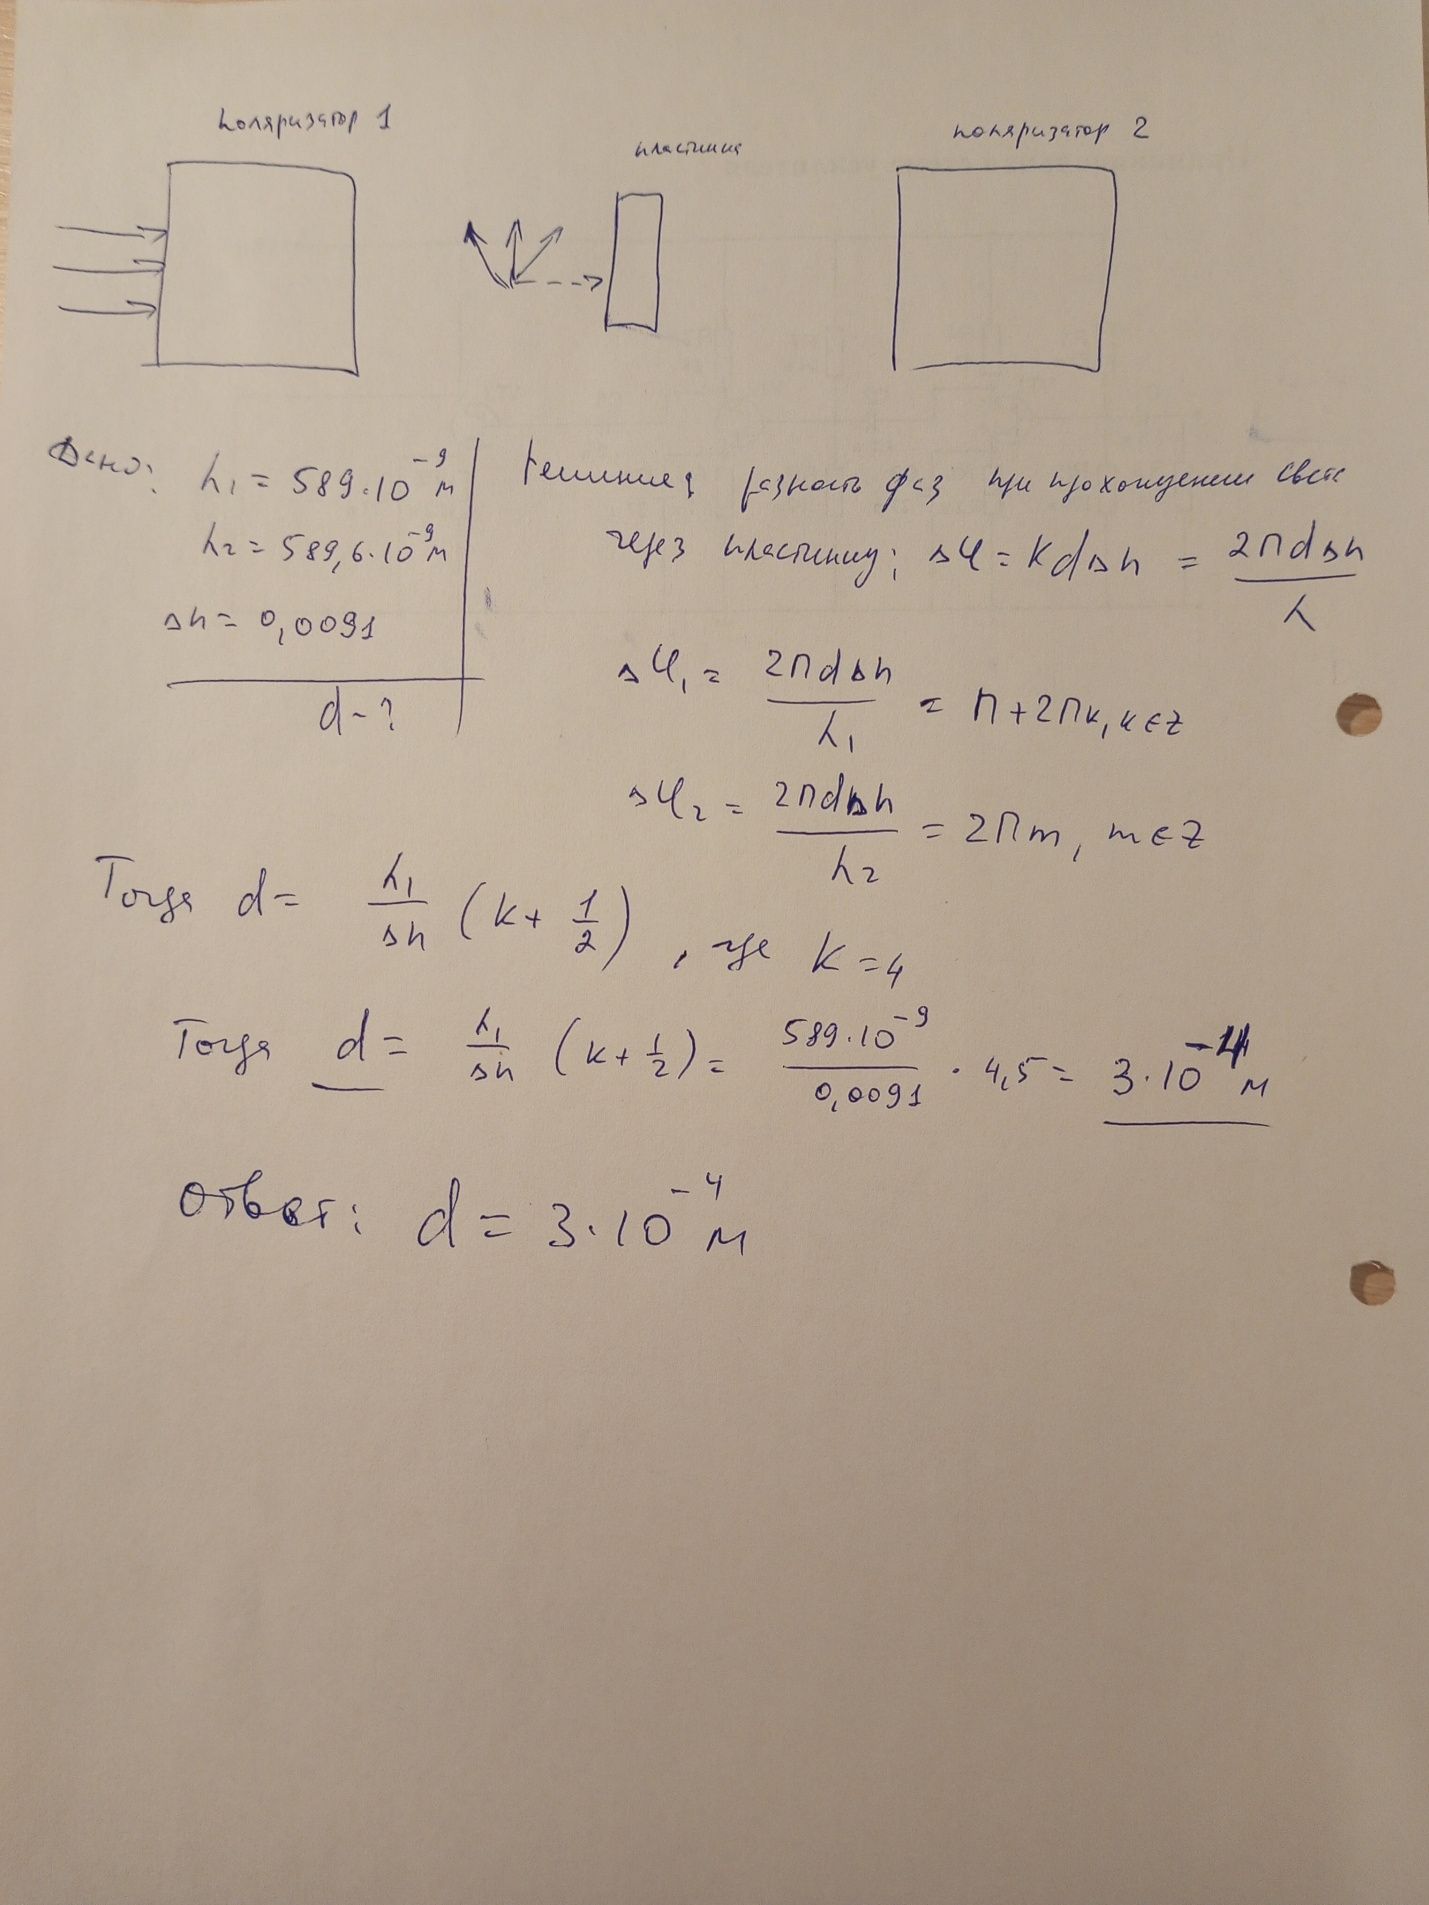 поляризатор 1
пластина
поляризатор 2
Дано: λ₁ = 589·10⁻⁹ м
λ₂ = 589,6·10⁻⁹ м
Δn = 0,0091
d - ?
Решение: разность фаз при прохождении света
через пластину: Δφ = kdΔn = 2πdΔn / λ
Δφ₁ = 2πdΔn / λ₁ = π + 2πk, k ∈ Z
Δφ₂ = 2πdΔn / λ₂ = 2πm, m ∈ Z
Тогда d = λ₁ / Δn (k + 1/2), где k = 4
Тогда d = λ₁ / Δn (k + 1/2) = 589·10⁻⁹ / 0,0091 · 4,5 = 3·10⁻⁴ м
Ответ: d = 3·10⁻⁴ м